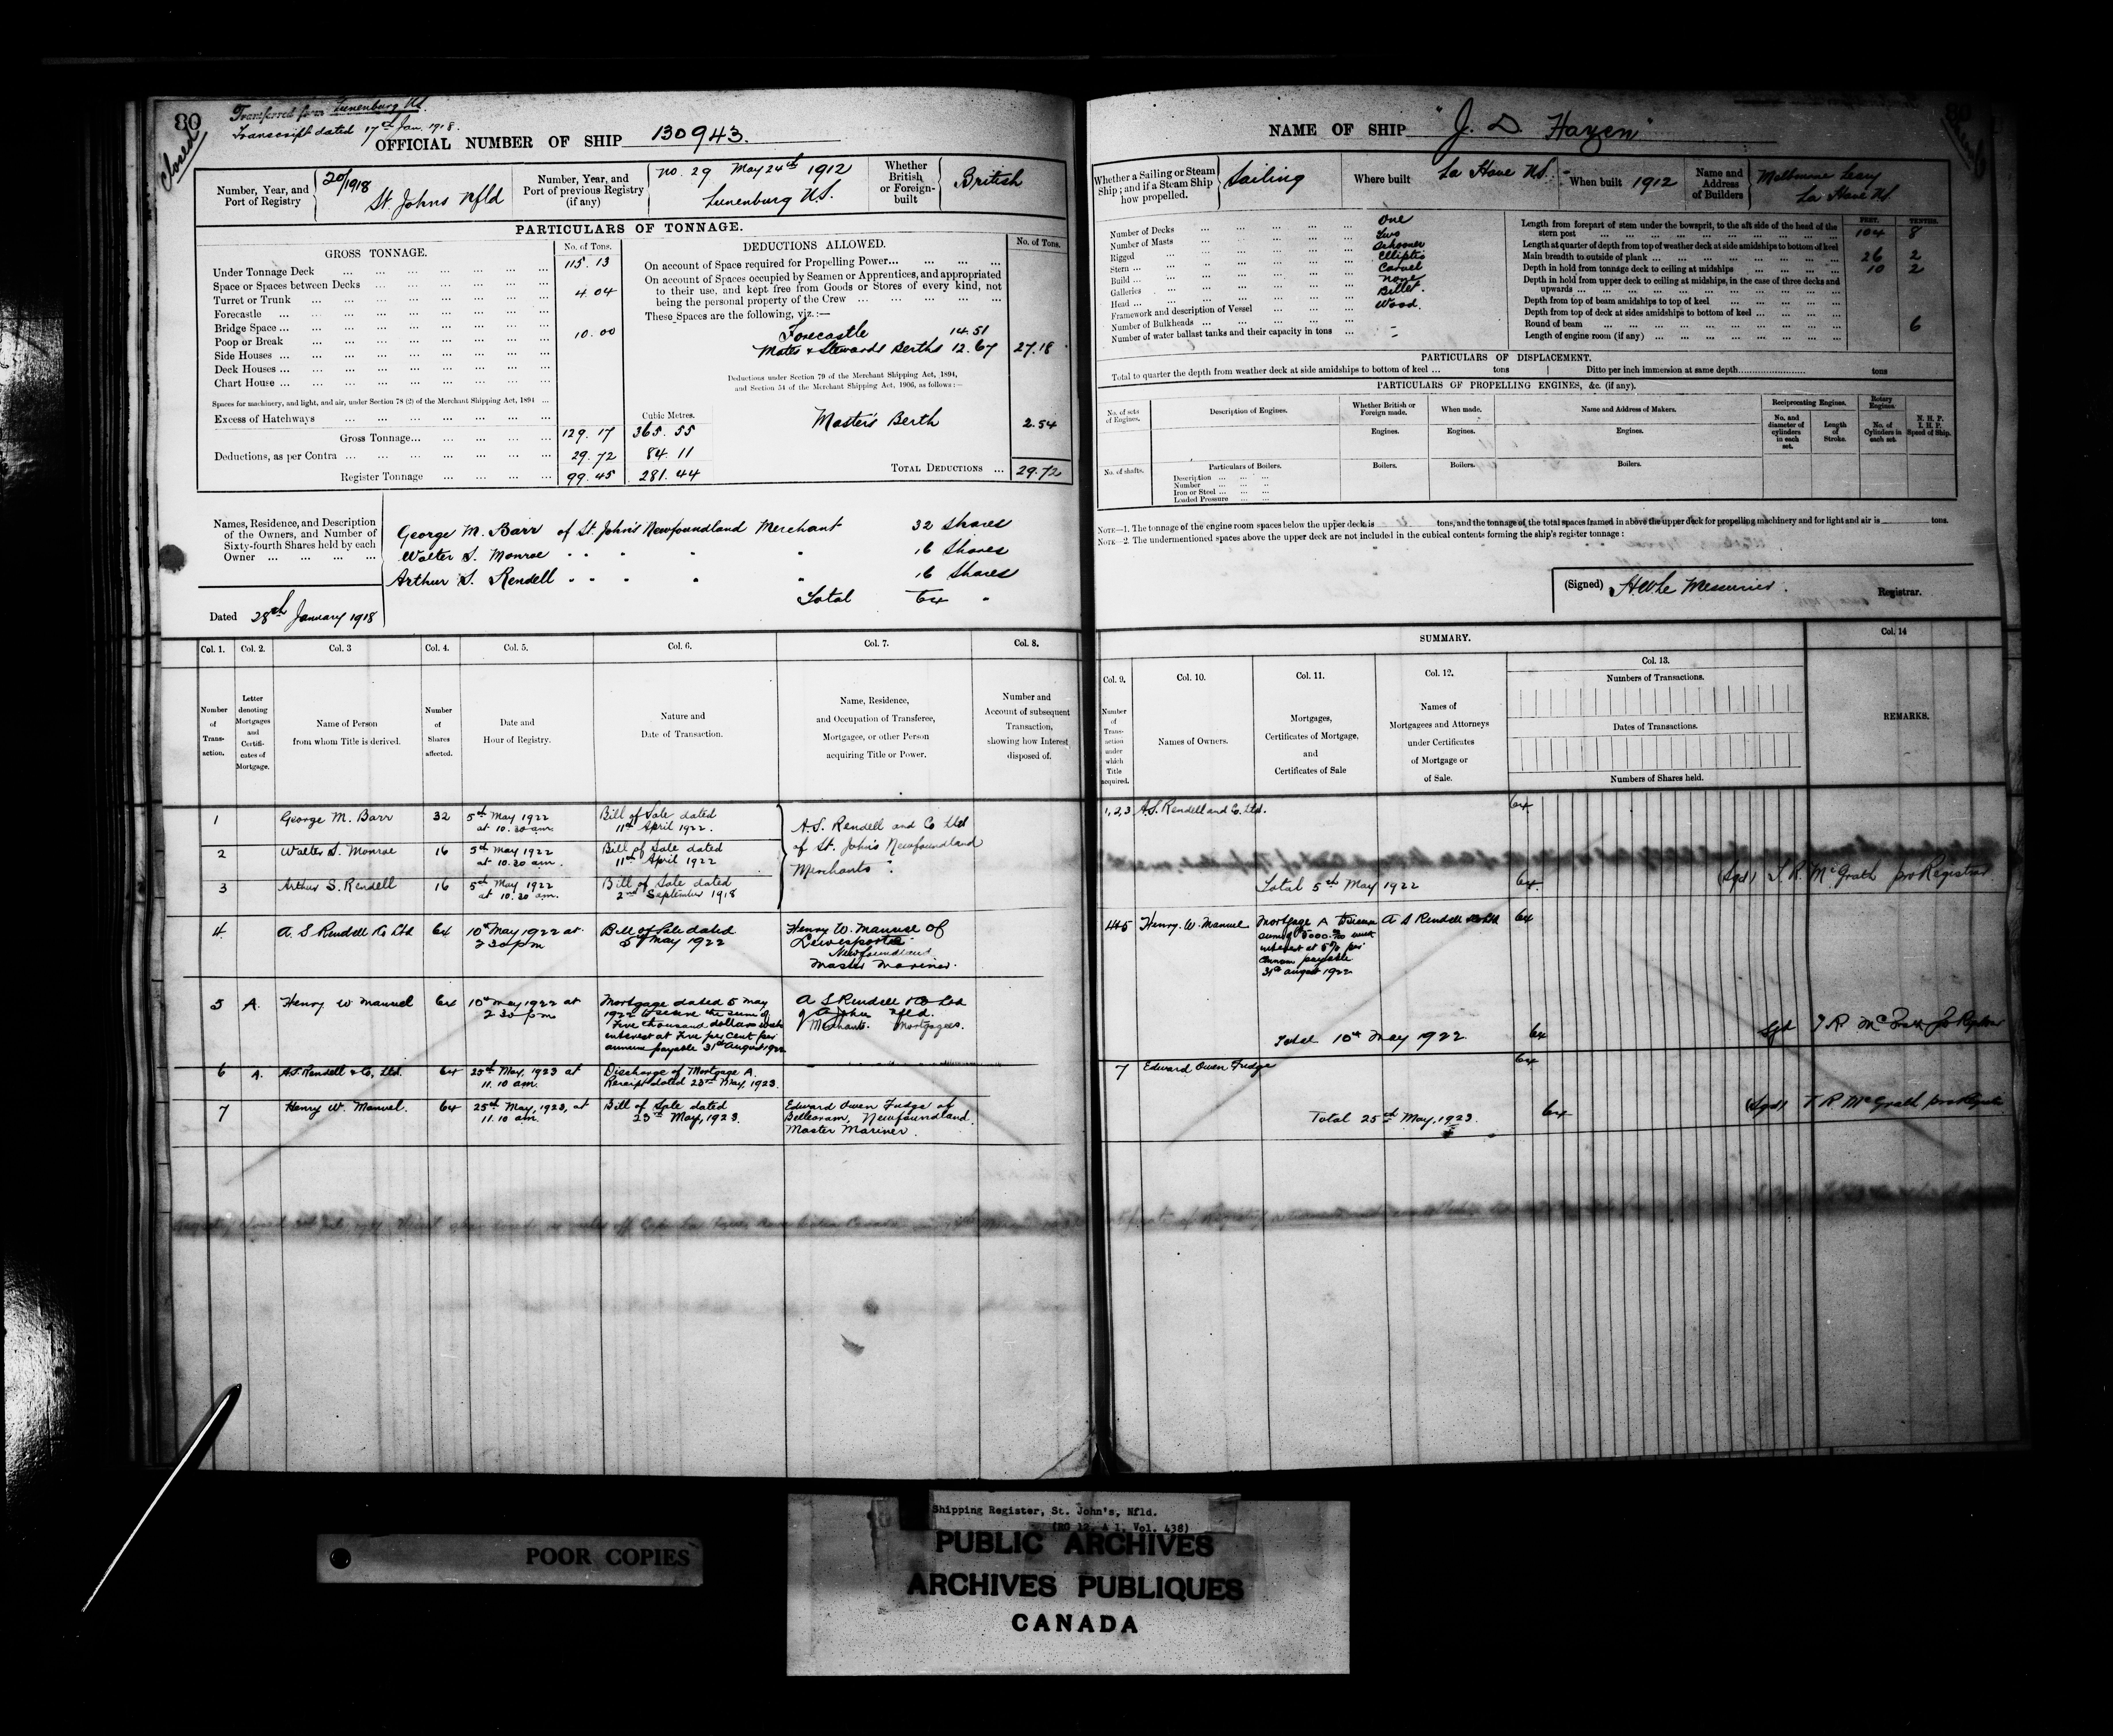 80
Closed
Transferred from Lunenburg N.S.
Transcript dated 17th Jan. 1918.
OFFICIAL NUMBER OF SHIP 130943.
Number, Year, and Port of Registry
20/1918
St. Johns Nfld
Number, Year, and Port of previous Registry (if any)
No. 29 May 24th 1912
Lunenburg N.S.
Whether British or Foreign-built
British
PARTICULARS OF TONNAGE.
GROSS TONNAGE.
No. of Tons.
Under Tonnage Deck 115.13
Space or Spaces between Decks
Turret or Trunk 4.04
Forecastle
Bridge Space
Poop or Break 10.00
Side Houses
Deck Houses
Chart House
Spaces for machinery, and light, and air, under Section 78 (2) of the Merchant Shipping Act, 1894
Excess of Hatchways
Cubic Metres.
Gross Tonnage 129.17 365.55
Deductions, as per Contra 29.72 84.11
Register Tonnage 99.45 281.44
DEDUCTIONS ALLOWED.
No. of Tons.
On account of Space required for Propelling Power
On account of Spaces occupied by Seamen or Apprentices, and appropriated
to their use, and kept free from Goods or Stores of every kind, not
being the personal property of the Crew
These Spaces are the following, viz.:—
Forecastle 14.51
Mates & Stewards Berths 12.67 27.18
Deductions under Section 79 of the Merchant Shipping Act, 1894,
and Section 54 of the Merchant Shipping Act, 1906, as follows:—
Master's Berth 2.54
TOTAL DEDUCTIONS 29.72
Names, Residence, and Description
of the Owners, and Number of
Sixty-fourth Shares held by each
Owner
George M. Barr of St John's Newfoundland Merchant 32 Shares
Walter S. Monroe " " " " " 16 Shares
Arthur S. Rendell " " " " " 16 Shares
Total 64 "
Dated 28th January 1918
Col. 1. Col. 2. Col. 3 Col. 4. Col. 5. Col. 6. Col. 7. Col. 8.
Number of Transaction.
Letter denoting Mortgages and Certificates of Mortgage.
Name of Person from whom Title is derived.
Number of Shares affected.
Date and Hour of Registry.
Nature and Date of Transaction.
Name, Residence, and Occupation of Transferee, Mortgagee, or other Person acquiring Title or Power.
Number and Account of subsequent Transaction, showing how Interest disposed of.
1 George M. Barr 32 5th May 1922 at 10.30 am. Bill of Sale dated 11th April 1922.
2 Walter S. Monroe 16 5th May 1922 at 10.30 am. Bill of Sale dated 11th April 1922
3 Arthur S. Rendell 16 5th May 1922 at 10.30 am. Bill of Sale dated 2nd September 1918
A.S. Rendell and Co Ltd
of St. John's Newfoundland
Merchants.
4 A. S Rendell & Co Ltd 64 10th May 1922 at 2 30 pm Bill of Sale dated 5th May 1922
Henry W. Manuel of
Lewisporte
Newfoundland
Master Mariner.
5 A. Henry W Manuel 64 10th May 1922 at 2 30 pm
Mortgage dated 5 May
1922 to secure the sum of
Five thousand dollars with
interest at Five per cent per
annum payable 31st August 1922
A S Rendell & Co Ltd
of St John's Nfld.
Merchants. Mortgagees.
6 A. A.S. Rendell & Co, Ltd. 64 25th May, 1923 at 11.10 am. Discharge of Mortgage A. Receipt dated 23rd May, 1923.
7 Henry W. Manuel. 64 25th May, 1923, at 11.10 am. Bill of Sale dated 23rd May, 1923.
Edward Owen Fudge of
Belleoram, Newfoundland.
Master Mariner.
NAME OF SHIP "J. D. Hazen"
Whether a Sailing or Steam Ship; and if a Steam Ship how propelled.
Sailing
Where built
La Have N.S.
When built 1912
Name and Address of Builders
La Have N.S.
Number of Decks One
Number of Masts Two
Rigged Schooner
Stern Elliptic
Build Carvel
Galleries None
Head Billet
Framework and description of Vessel Wood.
Number of Bulkheads
Number of water ballast tanks and their capacity in tons
FEET. TENTHS.
Length from forepart of stem under the bowsprit, to the aft side of the head of the stern post 104 8
Length at quarter of depth from top of weather deck at side amidships to bottom of keel
Main breadth to outside of plank 26 2
Depth in hold from tonnage deck to ceiling at midships 10 2
Depth in hold from upper deck to ceiling at midships, in the case of three decks and upwards
Depth from top of beam amidships to top of keel
Depth from top of deck at sides amidships to bottom of keel
Round of beam 6
Length of engine room (if any)
PARTICULARS OF DISPLACEMENT.
Total to quarter the depth from weather deck at side amidships to bottom of keel tons Ditto per inch immersion at same depth tons
PARTICULARS OF PROPELLING ENGINES, &c. (if any).
No. of sets of Engines.
Description of Engines.
Whether British or Foreign made.
When made.
Name and Address of Makers.
Reciprocating Engines.
Rotary Engines
No. and diameter of cylinders in each set.
Length of Stroke.
No. of Cylinders in each set.
N. H. P.
I. H. P.
Speed of Ship.
Engines. Engines. Engines.
No. of shafts.
Particulars of Boilers.
Boilers. Boilers. Boilers.
Description
Number
Iron or Steel
Loaded Pressure
NOTE—1. The tonnage of the engine room spaces below the upper deck is tons, and the tonnage of the total spaces framed in above the upper deck for propelling machinery and for light and air is tons.
NOTE—2. The undermentioned spaces above the upper deck are not included in the cubical contents forming the ship's register tonnage:
(Signed) H W Le Messurier. Registrar.
SUMMARY.
Col. 9. Col. 10. Col. 11. Col. 12. Col. 13. Col. 14
Number of Transaction under which Title acquired.
Names of Owners.
Mortgages, Certificates of Mortgage, and Certificates of Sale
Names of Mortgagees and Attorneys under Certificates of Mortgage or of Sale.
Numbers of Transactions.
Dates of Transactions.
Numbers of Shares held.
REMARKS.
1,2,3 A.S. Rendell and Co. Ltd. 64
Total 5th May 1922 64 (Sgd) T. R. McGrath pro Registrar.
4&5 Henry. W. Manuel
Mortgage A to secure
sum of 5000.00 with
interest at 5% per
annum payable
31st August 1922
A S Rendell & Co Ltd 64
Total 10th May 1922 64 Sgd T R McGrath pro Registrar
7 Edward Owen Fudge 64
Total 25th May, 1923. 64 (Sgd) T R McGrath pro Registrar
POOR COPIES
Shipping Register, St. John's, Nfld.
(RG 12, A 1, Vol. 438)
PUBLIC ARCHIVES
ARCHIVES PUBLIQUES
CANADA